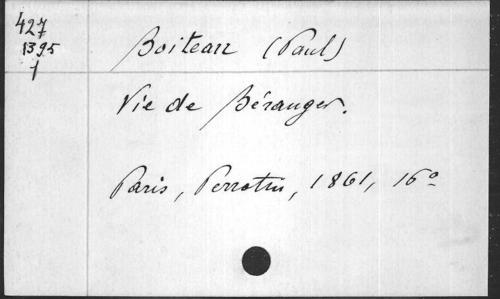 427
1395
1
Boiteau (Paul)
Vie de Béranger.
Paris, Perrotin, 1861, 16º